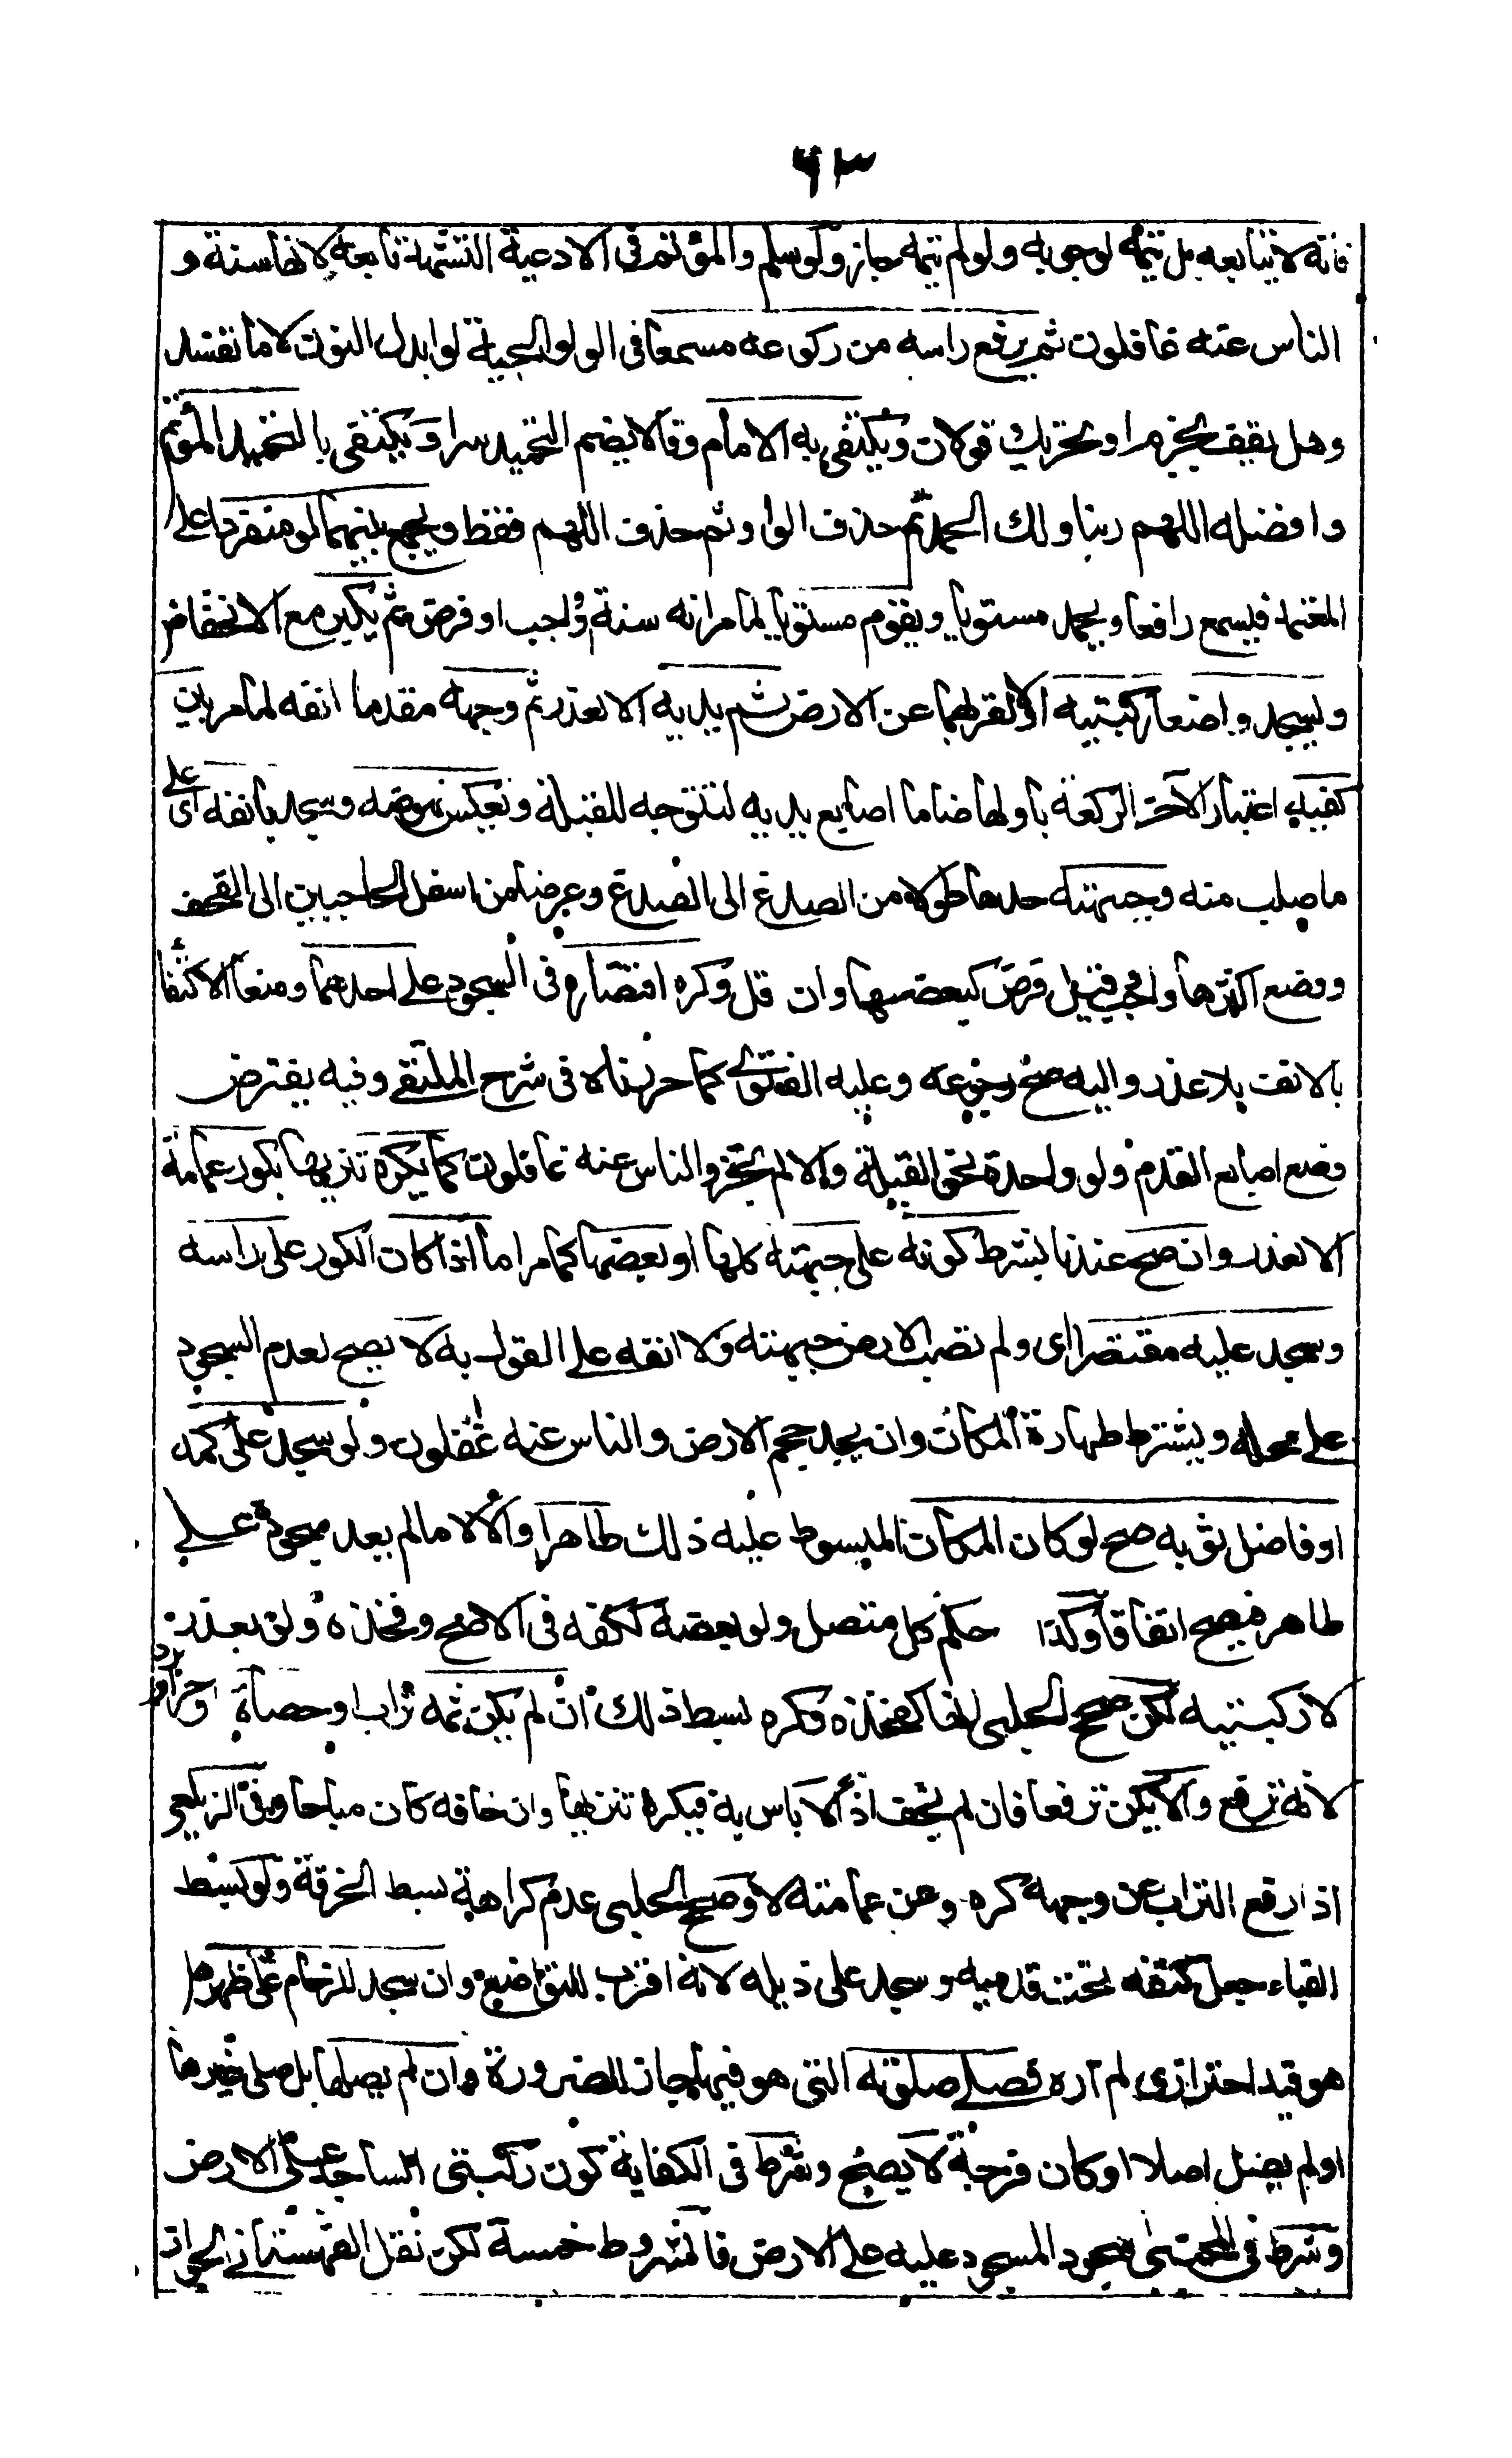 ٦٣
فانه لا يتابعه بل يتمه لوجوبه ولو لم يتمه جاز ولو سلم والمؤتم في الادعية التشهد تابعه لانها سنة و
الناس عنه غافلون ثم يرفع راسه من ركوعه مسمعا في الولوالجية لو ابدل النون لاما تفسد
وهل يقف بجزم او تحريك قولان ويكتفى به الامام وقالا يضم التحميد سرا ويكتفى بالتحميد المؤتم
وافضله اللهم ربنا ولك الحمد ثم حذف الواو ثم حذف اللهم فقط ويجمع بينهما لو منفردا على
المعتمد فيسمع رافعا ويحمد مستويا ويقوم مستويا لما مر انه سنة او واجب او فرض ثم يكبر مع الانخفاض
ويسجد واضعا ركبتيه اولا لقربهما عن الارض ثم يديه الا لعذر ثم وجهه مقدما انفه لما مر بين
كفيه اعتبار الآخر الركعة باولها ضاما اصابع يديه لتتوجه للقبلة ويعكس نهوضه وسجد بانفه اى على
ما صلب منه وجبهته حدها طولا من الصدغ الى الصدغ وعرضا من اسفل الحاجبين الى القحف
ووضع اكثرها واجب وقيل فرض كبعضها وان قل وكره اقتصاره في السجود على احدهما ومنعا الاكتفاء
بالانف بلا عذر واليه صح رجوعه وعليه الفتوى كما حررناه في شرح الملتقى وفيه يفترض
وضع اصابع القدم ولو واحدة نحو القبلة والا لم تجز والناس عنه غافلون كما يكره تنزيها بكور عمامة
الا لعذر وان صح عندنا بشرط كونه على جبهته كلها او بعضها كما مر اما اذا كان الكور على راسه
وسجد عليه مقتصرا اى ولم تصب الارض جبهته ولا انفه على القول به لا يصح لعدم السجود
على محله ويشترط طهارة المكان وان يجد حجم الارض والناس عنه غفلون ولو سجد على كمه
او فاضل ثوبه صح لو كان المكان المبسوط عليه ذلك طاهرا والا لا ما لم يعد سجوده على
طاهر فيصح اتفاقا وكذا حكم كل متصل ولو بعضه ككفه في الاصح وفخذه ولو بعذر
لا ركبتيه لكن صحح الحلبى انها كفخذه وكره بسط ذلك ان لم يكن ثمه تراب او حصاة او حر او برد
لانه ترفع والا يكن ترفعا فان لم يخف اذى لا باس به فيكره تنزيها وان خافه كان مباحا وفى الزيلعى
اذا رفع التراب عن وجهه كره وعن عمامته لا وصحح الحلبى عدم كراهة بسط الخرقة ولو بسط
القباء جعل كتفه تحت قدميه وسجد على ذيله لانه اقرب للتواضع وان سجد للزحام على ظهر هل
هو قيد احترازى لم اره مصلى صلوته التى هو فيها جاز للضرورة وان لم يصلها بل صلى غيرها
او لم يصل اصلا او كان فرجة لا يصح وشرط في الكفاية كون ركبتى الساجد على الارض
وشرط في المجتبى سجود المسجود عليه على الارض فالشروط خمسة لكن نقل القهستانى الجواز